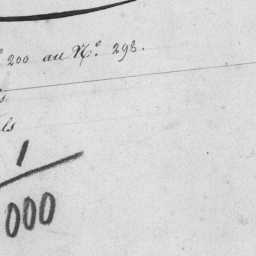 200 au N.º 298.
ls
1
000